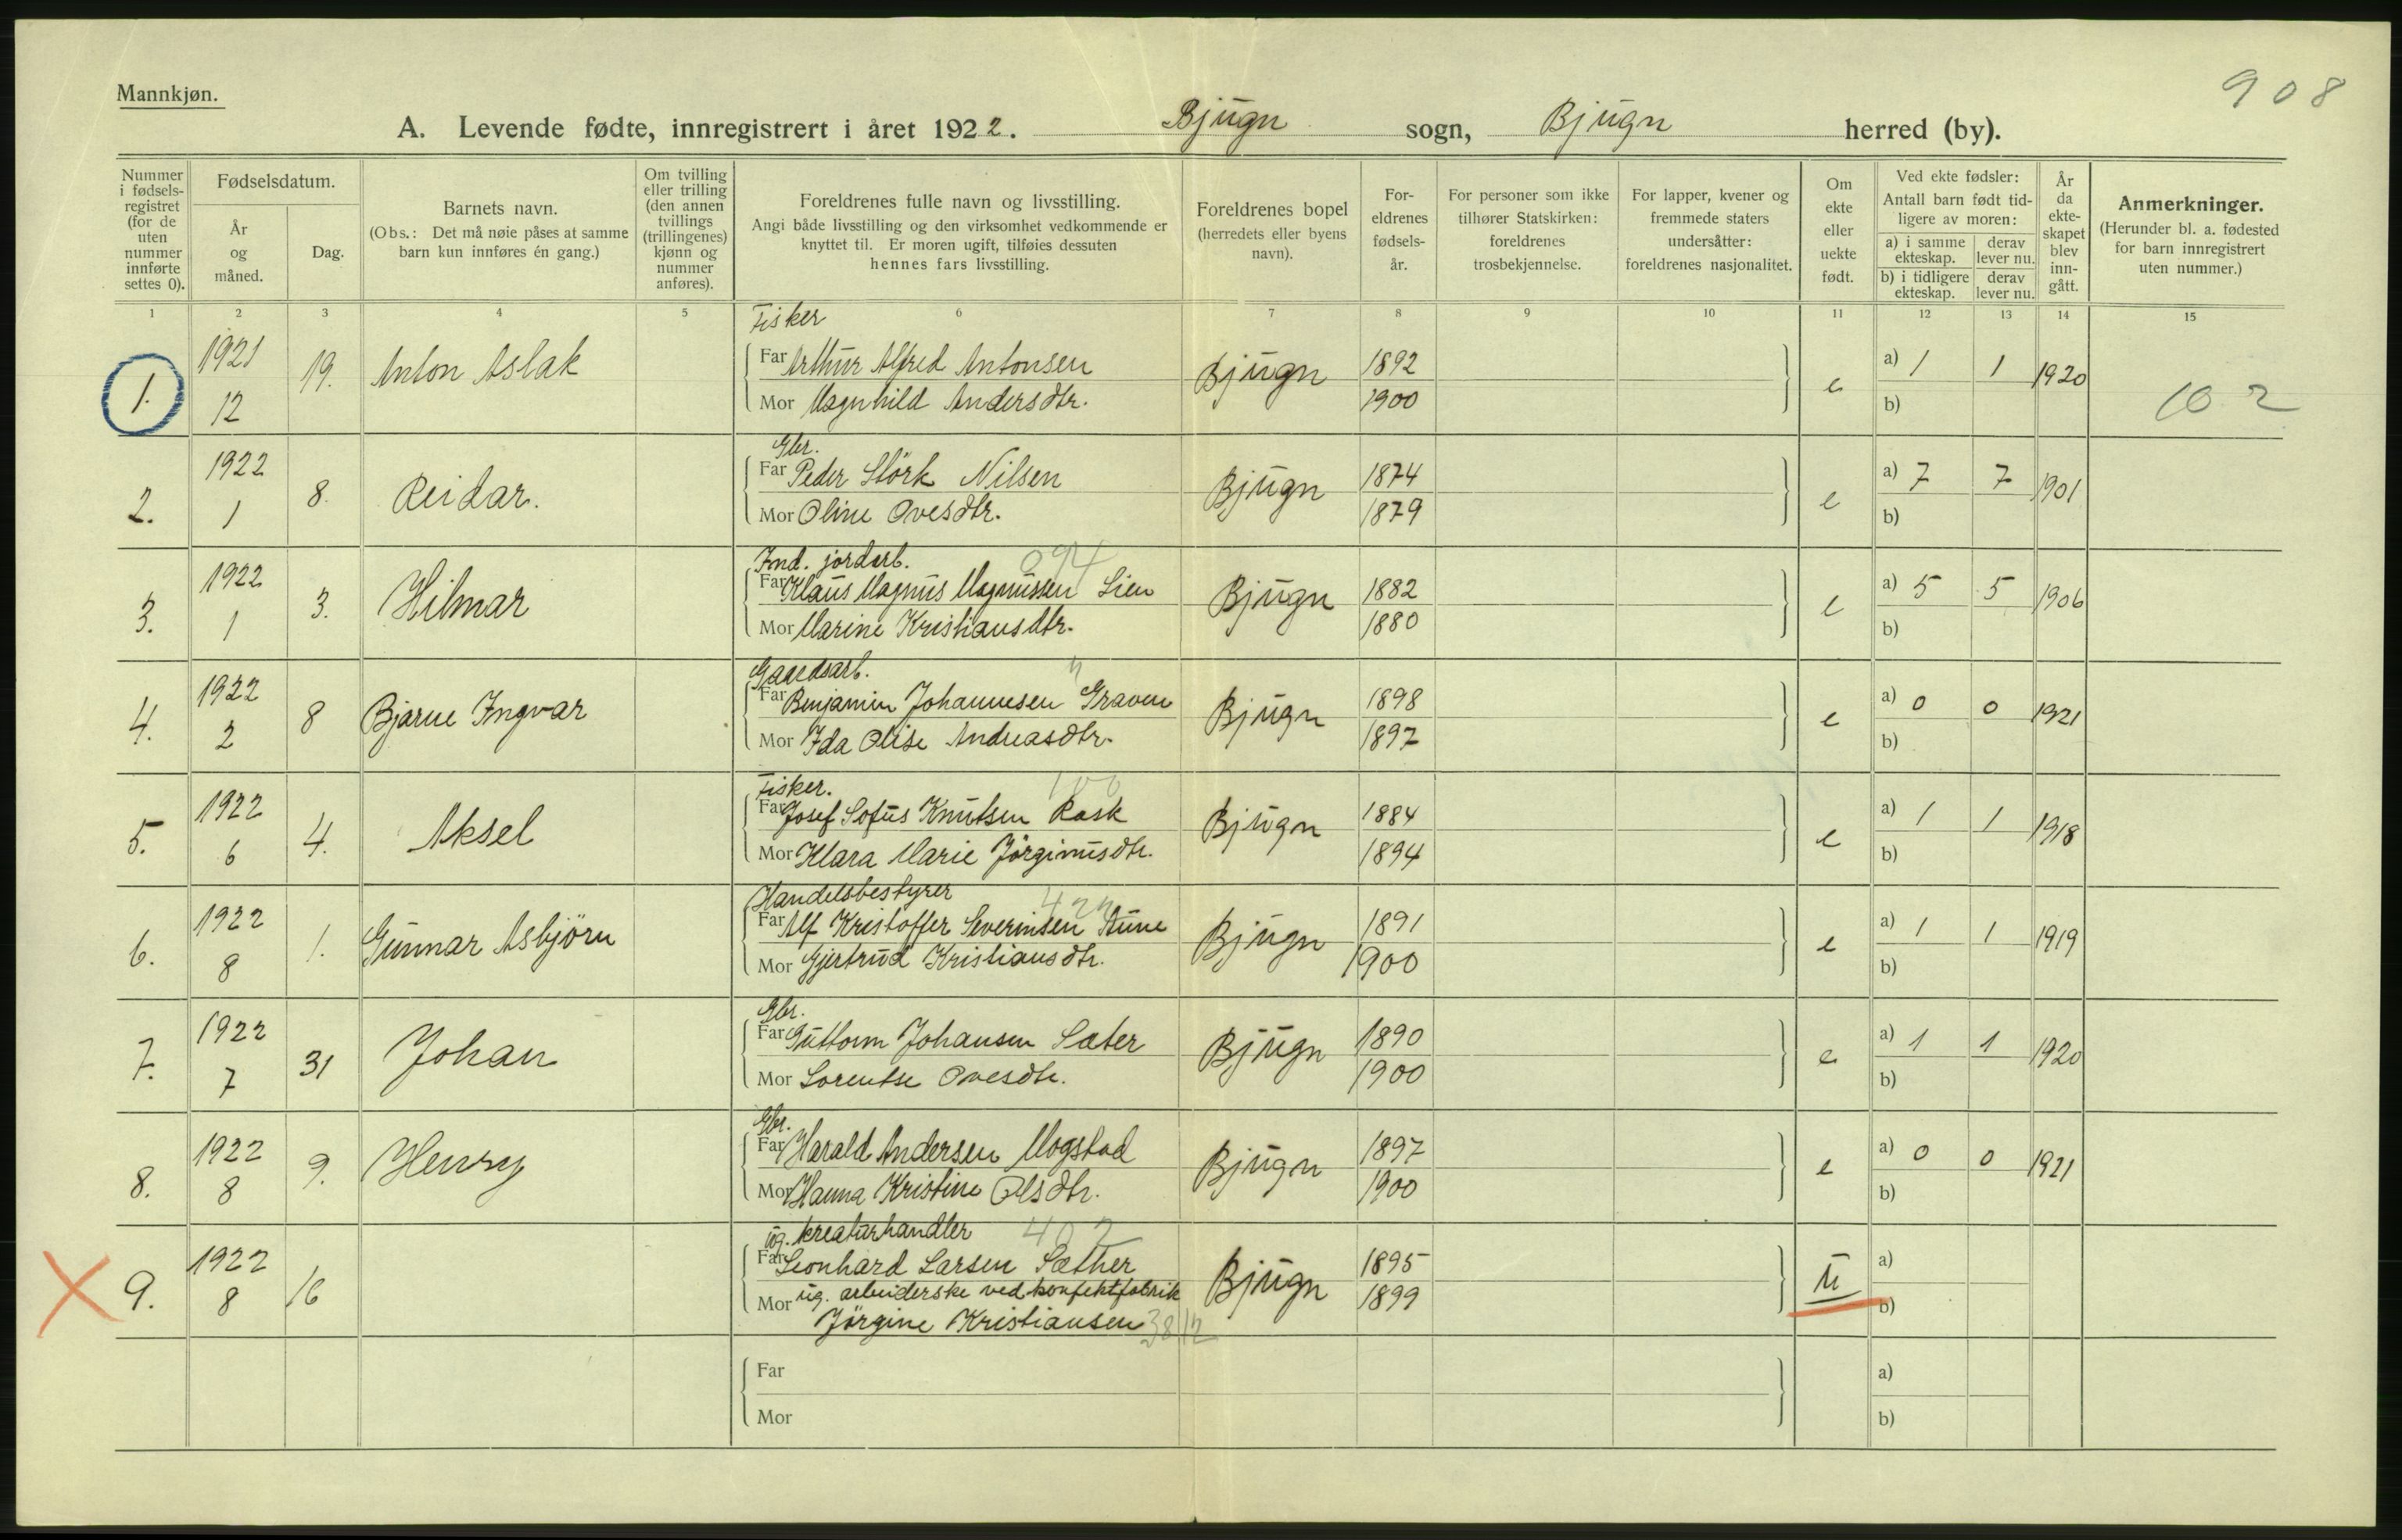 908
Mannkjøn.
A. Levende fødte, innregistrert i året 1922. Bjugn sogn, Bjugn herred (by).
Nummer i fødsels-registret (for de uten nummer innførte settes 0).
Fødselsdatum.
År og måned.
Dag.
Barnets navn.
(Obs.: Det må nøie påses at samme barn kun innføres én gang.)
Om tvilling eller trilling (den annen tvillings (trillingenes) kjønn og nummer anføres).
Foreldrenes fulle navn og livsstilling.
Angi både livsstilling og den virksomhet vedkommende er knyttet til. Er moren ugift, tilføies dessuten hennes fars livsstilling.
Foreldrenes bopel (herredets eller byens navn).
For-eldrenes fødsels-år.
For personer som ikke tilhører Statskirken: foreldrenes trosbekjennelse.
For lapper, kvener og fremmede staters undersåtter: foreldrenes nasjonalitet.
Om ekte eller uekte født.
Ved ekte fødsler:
Antall barn født tid-ligere av moren:
a) i samme ekteskap.
derav lever nu.
b) i tidligere ekteskap.
derav lever nu.
År da ekte-skapet blev inn-gått.
Anmerkninger.
(Herunder bl. a. fødested for barn innregistrert uten nummer.)
1 2 3 4 5 6 7 8 9 10 11 12 13 14 15
Fisker
1. 1921 12 19. Anton Aslak
Far Arthur Alfred Antonsen Bjugn 1892 e a) 1 1 1920
Mor Magnhild Andersdtr. 1900 b)
102
Gbr.
2. 1922 1 8. Reidar.
Far Peder Störk Nilsen Bjugn 1874 e a) 7 7 1901
Mor Oline Ovesdtr. 1879 b)
Ind. jordarb. 094
3. 1922 1 3. Hilmar
Far Klaus Magnus Magnussen Lien Bjugn 1882 e a) 5 5 1906
Mor Marine Kristiansdtr. 1880 b)
Gaardsarb. "
4. 1922 2 8 Bjarne Ingvar
Far Benjamin Johannesen Graven Bjugn 1898 e a) 0 0 1921
Mor Ida Olise Andreasdtr. 1897 b)
Fisker.
5. 1922 6 4. Aksel
Far Josef Sofus Knutsen Rask Bjugn 1884 e a) 1 1 1918
Mor Klara Marie Jörginusdtr. 1894 b)
Handelsbestyrer
6. 1922 8 1. Gunnar Asbjörn
Far Alf Kristoffer Severinsen Aune Bjugn 1891 e a) 1 1 1919
Mor Gjertrud Kristiansdtr. 1900 b)
Gbr.
7. 1922 7 31 Johan
Far Guttorm Johansen Sæter Bjugn 1890 e a) 1 1 1920
Mor Lorentse Ovesdtr. 1900 b)
Gbr.
8. 1922 8 9. Henry
Far Harald Andersen Mogstad Bjugn 1897 e a) 0 0 1921
Mor Hanna Kristine Olsdtr. 1900 b)
ug. kreaturhandler 402
9. 1922 8 16
Far Leonhard Larsen Sæther Bjugn 1895 u a)
Mor ug. arbeiderske ved konfektfabrik 1899 b)
Jörgine Kristiansen
Far a)
Mor b)